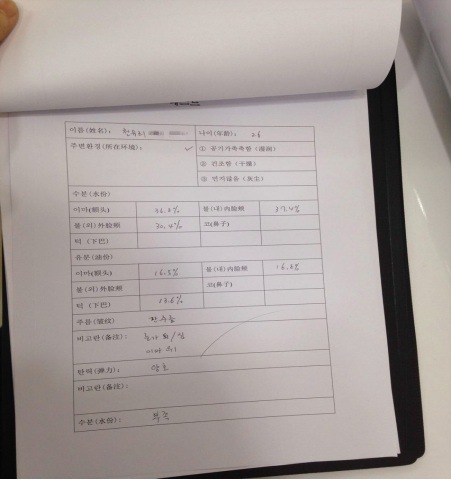 이름(姓名):
나이(年龄): 26
주변환경(所在环境): ✓
① 공기가촉촉함 (湿润)
② 건조함 (干燥)
③ 먼지많음 (灰尘)
수분(水份)
이마(额头) 볼(내)内脸颊 37.4%
볼(외)外脸颊 30.4% 코(鼻子)
턱 (下巴)
유분(油份)
이마(额头) 16.5% 볼(내)内脸颊
볼(외)外脸颊 코(鼻子)
턱 (下巴) 13.6%
주름(皱纹) 잔주름
비고란(备注):
탄력(弹力):
비고란(备注):
수분(水份): 부족